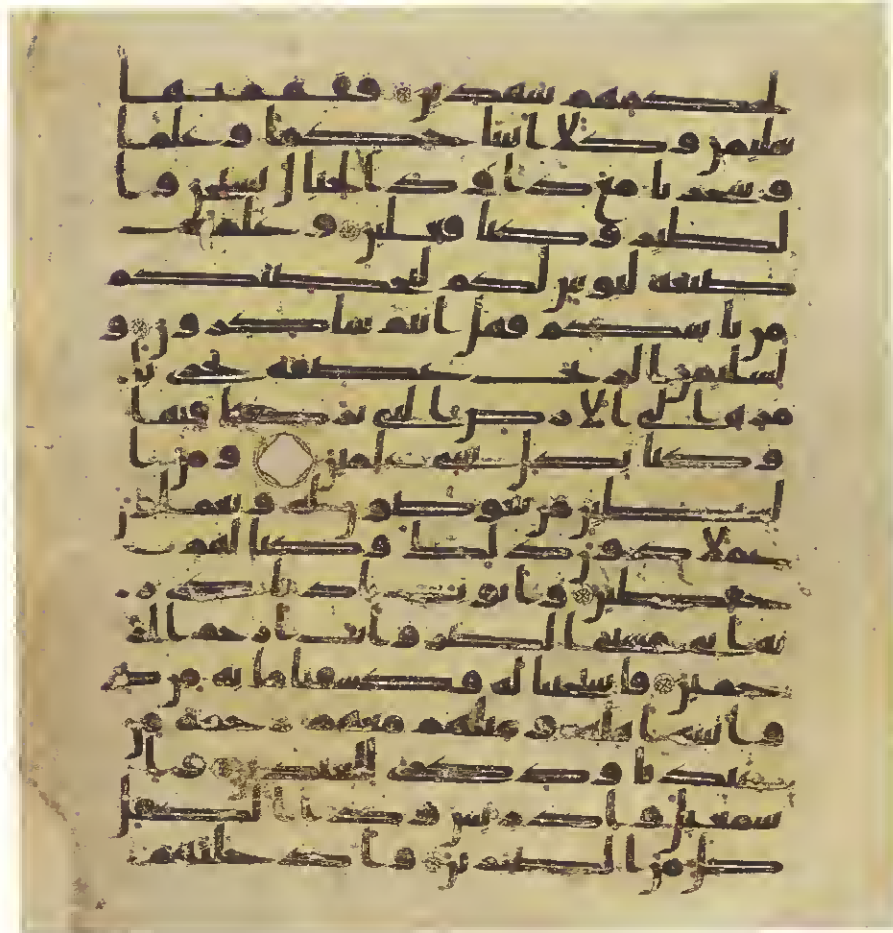 لحكمهم شهدين ففهمنها
سليمن وكلا اتينا حكما وعلما
وسخرنا مع داود الجبال يسبحن وا
لطير وكنا فعلين وعلمنه
صنعة لبوس لكم لتحصنكم
من باسكم فهل انتم شاكرون و
لسليمن الريح عصفة تجري با
مره الى الارض التي بركنا فيها
وكنا بكل شي علمين ومن ا
لشيطين من يغوصون له ويعملون
عملا دون ذلك وكنا لهم
حفظين وايوب اذ نادى ر
به اني مسني الضر وانت ارحم الر
حمين فاستجبنا له فكشفنا ما به من ضر
واتينه اهله ومثلهم معهم رحمة من
عندنا وذكرى للعبدين وا
سمعيل وادريس وذا الكفل
كل من الصبرين وادخلنهم